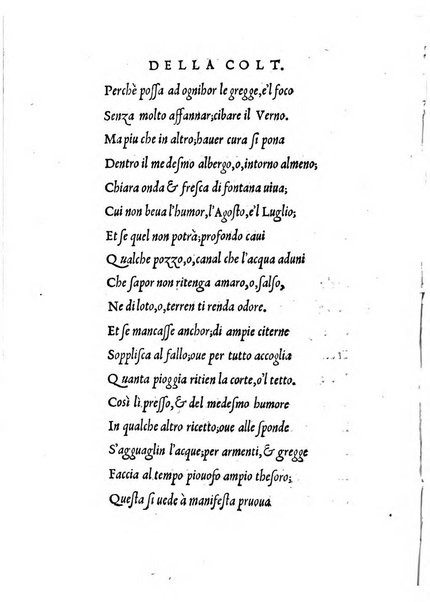 DELLA COLT.
Perchè poſſa ad ognihor le gregge, e'l foco
Senza molto affannar; cibare il Verno.
Ma piu che in altro; hauer cura ſi pona
Dentro il medeſmo albergo, o, intorno almeno;
Chiara onda & freſca di fontana uiua;
Cui non beua l'humor, l'Agoſto, e'l Luglio;
Et ſe quel non potrà; profondo caui
Qualche pozzo, o, canal che l'acqua aduni
Che ſapor non ritenga amaro, o, ſalſo,
Ne di loto, o, terren ti renda odore.
Et ſe mancaſſe anchor; di ampie citerne
Soppliſca al fallo; oue per tutto accoglia
Quanta pioggia ritien la corte, o'l tetto.
Così lì preſſo, & del medeſmo humore
In qualche altro ricetto; oue alle ſponde
S'agguaglin l'acque; per armenti, & gregge
Faccia al tempo piouoſo ampio theſoro;
Queſta ſi uede à manifeſta pruoua